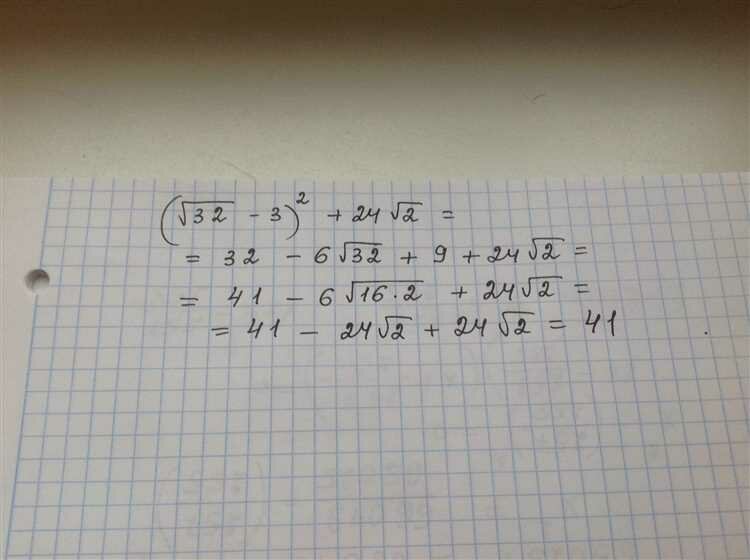 (√32 - 3)² + 24√2 =
= 32 - 6√32 + 9 + 24√2 =
= 41 - 6√16·2 + 24√2 =
= 41 - 24√2 + 24√2 = 41